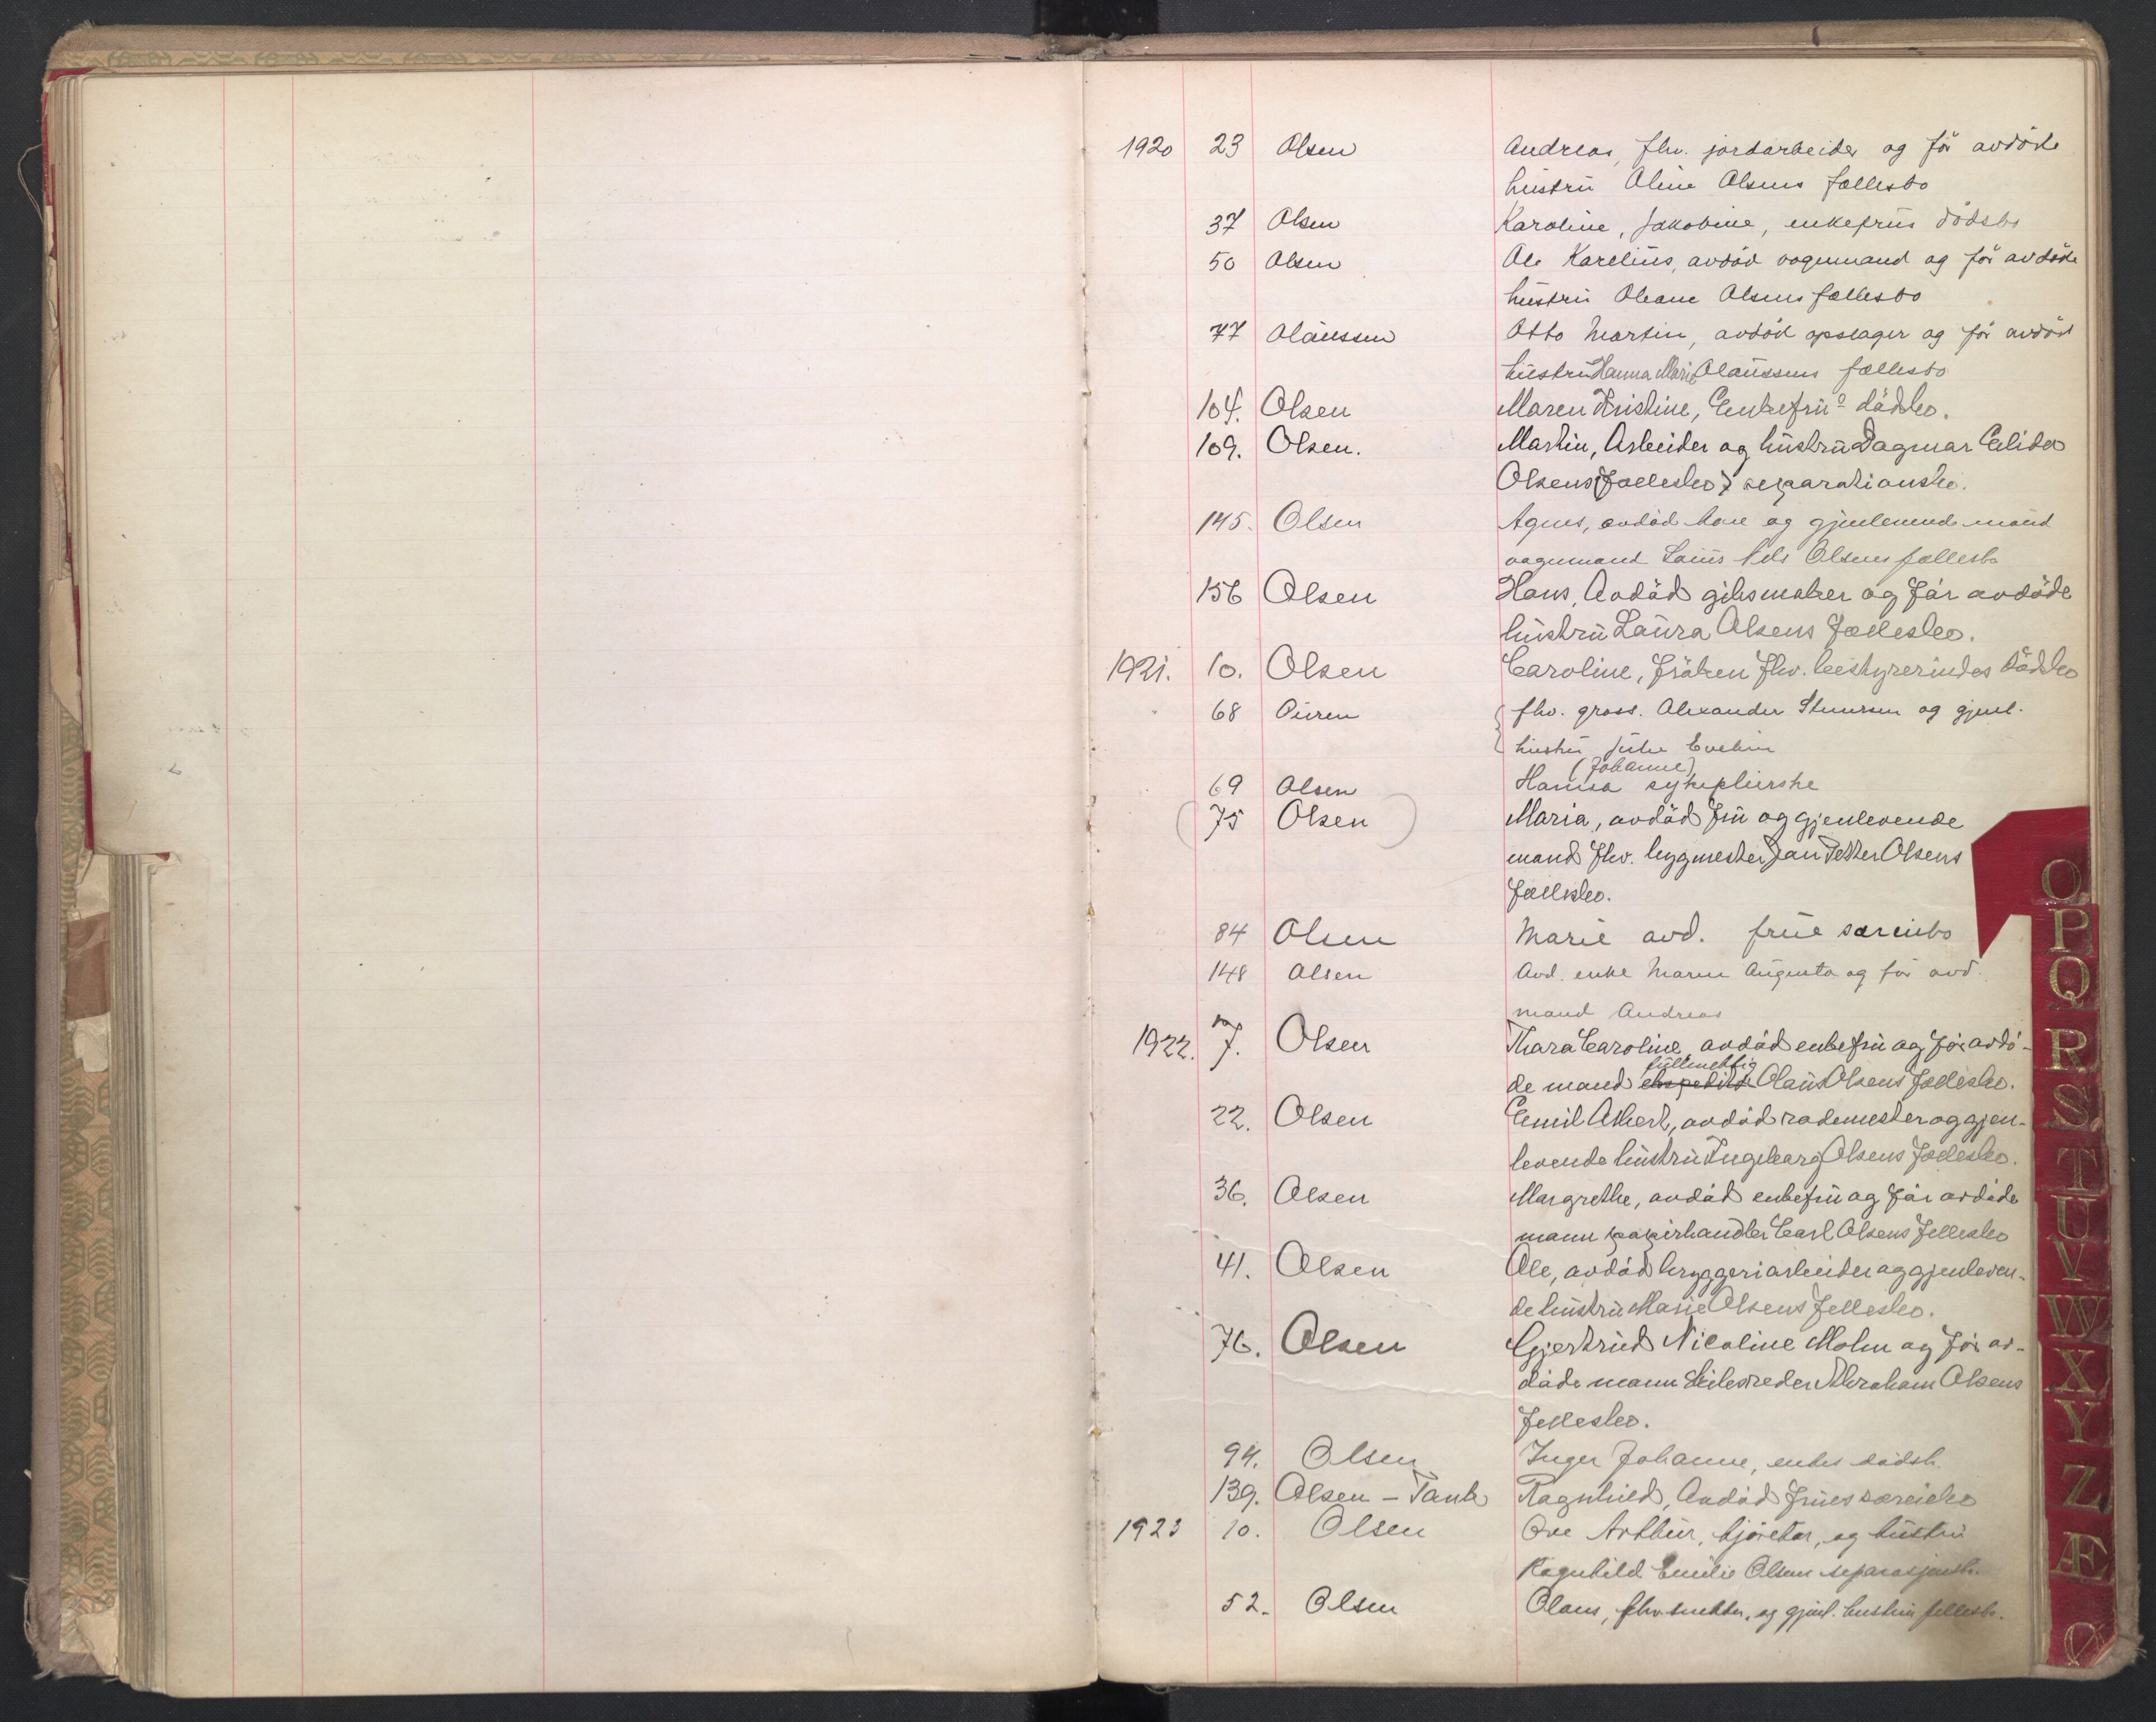 1920 23 Olsen Andreas, fhv. jordarbeider og før avdøde
hustrú Oline Olsens fællesbo
37 Olsen Karoline, Jakobine, enkefrús dødsbo
50 Olsen Ole Karelius, avdød vognmand og før avdøde
hústrú Oleane Olsens fællesbo
77 Olaussen Otto Martin, avdød opslager og før avdød
hústrú Hanna Marie Olaússens fællesbo
104. Olsen Maren Kristine, Enkefrús dødsbo.
109. Olsen. Martin, Arbeider og hústrú Dagmar Elida
Olsens (Fællesbo) separationsbo.
145. Olsen Agnes, avdød kone og gjenlevende mand
vognmand Laúis Nils Olsens fællesbo
156 Olsen Hans, Avdød gibsmaker og før avdøde
hústrú Laúra Olsens Fællesbo.
1921. 10. Olsen Caroline, Frøken fhv. bestyrerindes Dødsbo
68 fhv. gross. Alexander og gjenl.
hústrú Evelin
(Johanne)
69 Olsen Hanna sykepleierske
(75 Olsen) Maria, avdød Frú og gjenlevende
mand fhv. bygmester Jan Petter Olsens
Fællesbo.
84 Olsen Marie avd. frúe særeiebo
148 Olsen Avd. enke Maren Augusta og før avd.
mand Andreas
1922. 7. Olsen Thara Caroline, avdød enkefrú og før avdø-
fúllmektig
de mand Olaús Olsens Fællesbo.
22. Olsen Emil Albert, avdød rodemester og gjen-
levende hústrú Ingeborg Olsens Fællesbo.
36. Olsen Margrethe, avdød enkefrú og før avdøde
mann papirhandler Carl Olsens Fellesbo
41. Olsen Ole, avdød bryggeriarbeider og gjenleven-
de hústrú Marie Olsens Fellesbo.
76. Olsen Gjertrúd Nicoline Mohn og før av-
døde mann Skibsreder Abraham Olsens
Fellesbo.
94. Olsen Inger Johanne, enkes dødsb.
139. Olsen – Tank Ragnhild, Avdød Frúes særeiebo
1923 10. Olsen Ove Arthúr, kjøretør, og hústrú
Ragnhild Emilie Olsens separasjonsb.
52. Olsen Olaus, fhv. snekker, og gjenl. hustrús fellesb.
O
P
Q
R
S
T
U
V
W
X
Y
Z
Æ
Ø